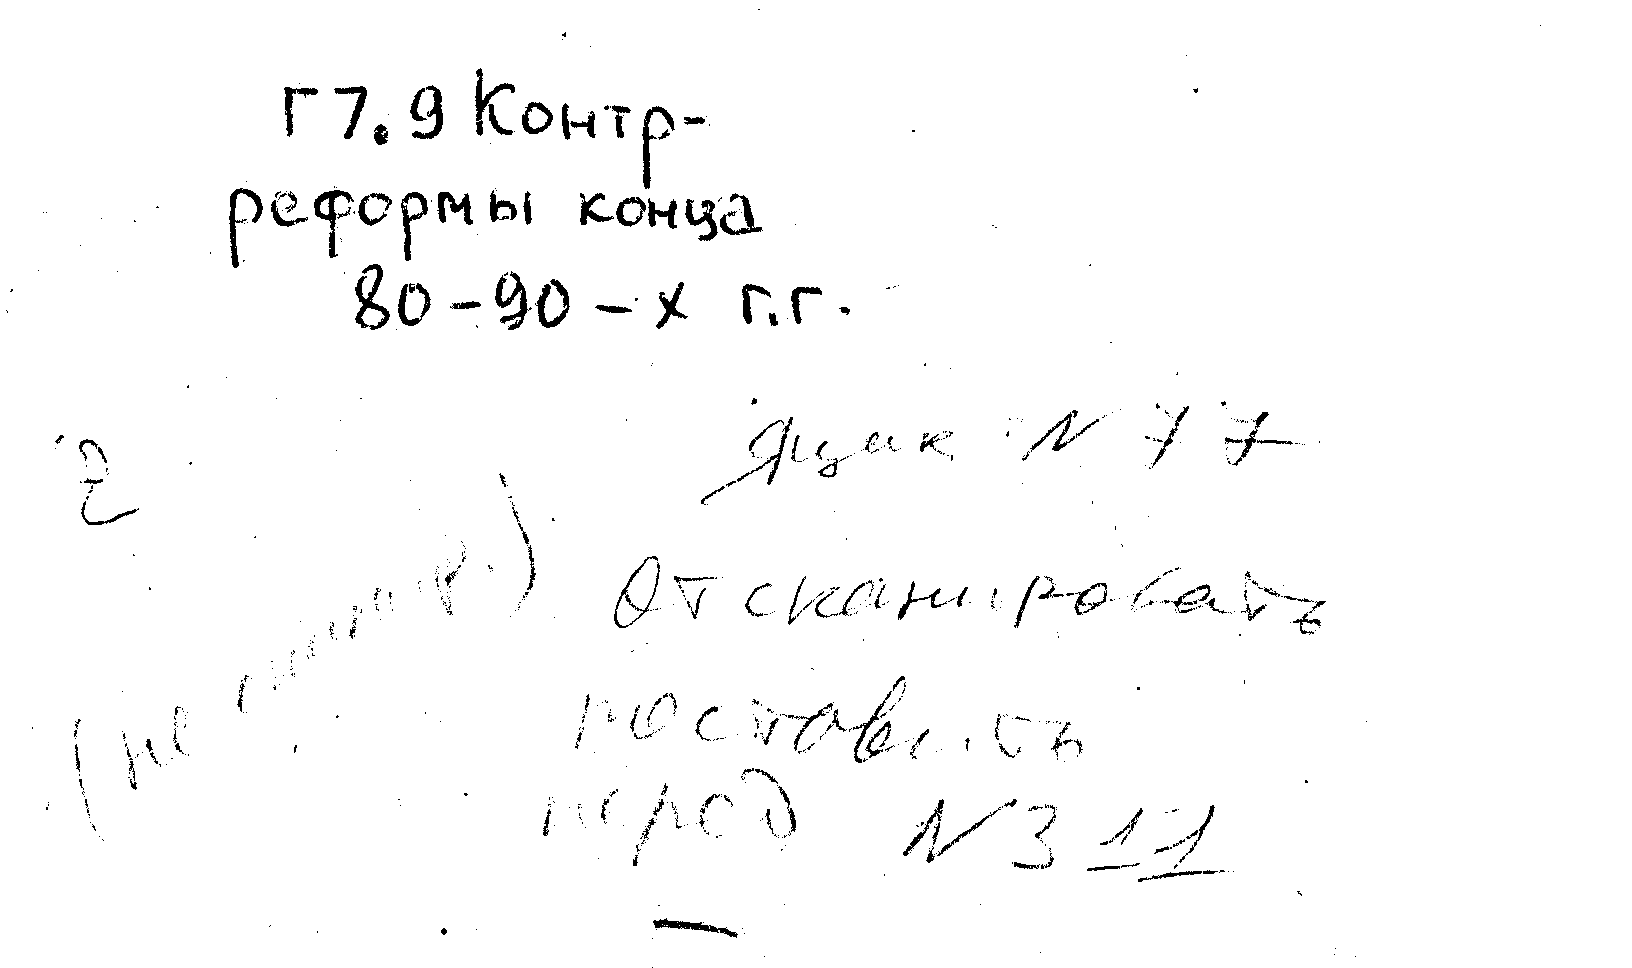 Г 7.9 Контр-
реформы конца
80-90-х г.г.
Ящик N 77
(не
Отсканировать
поставить
перед N 311